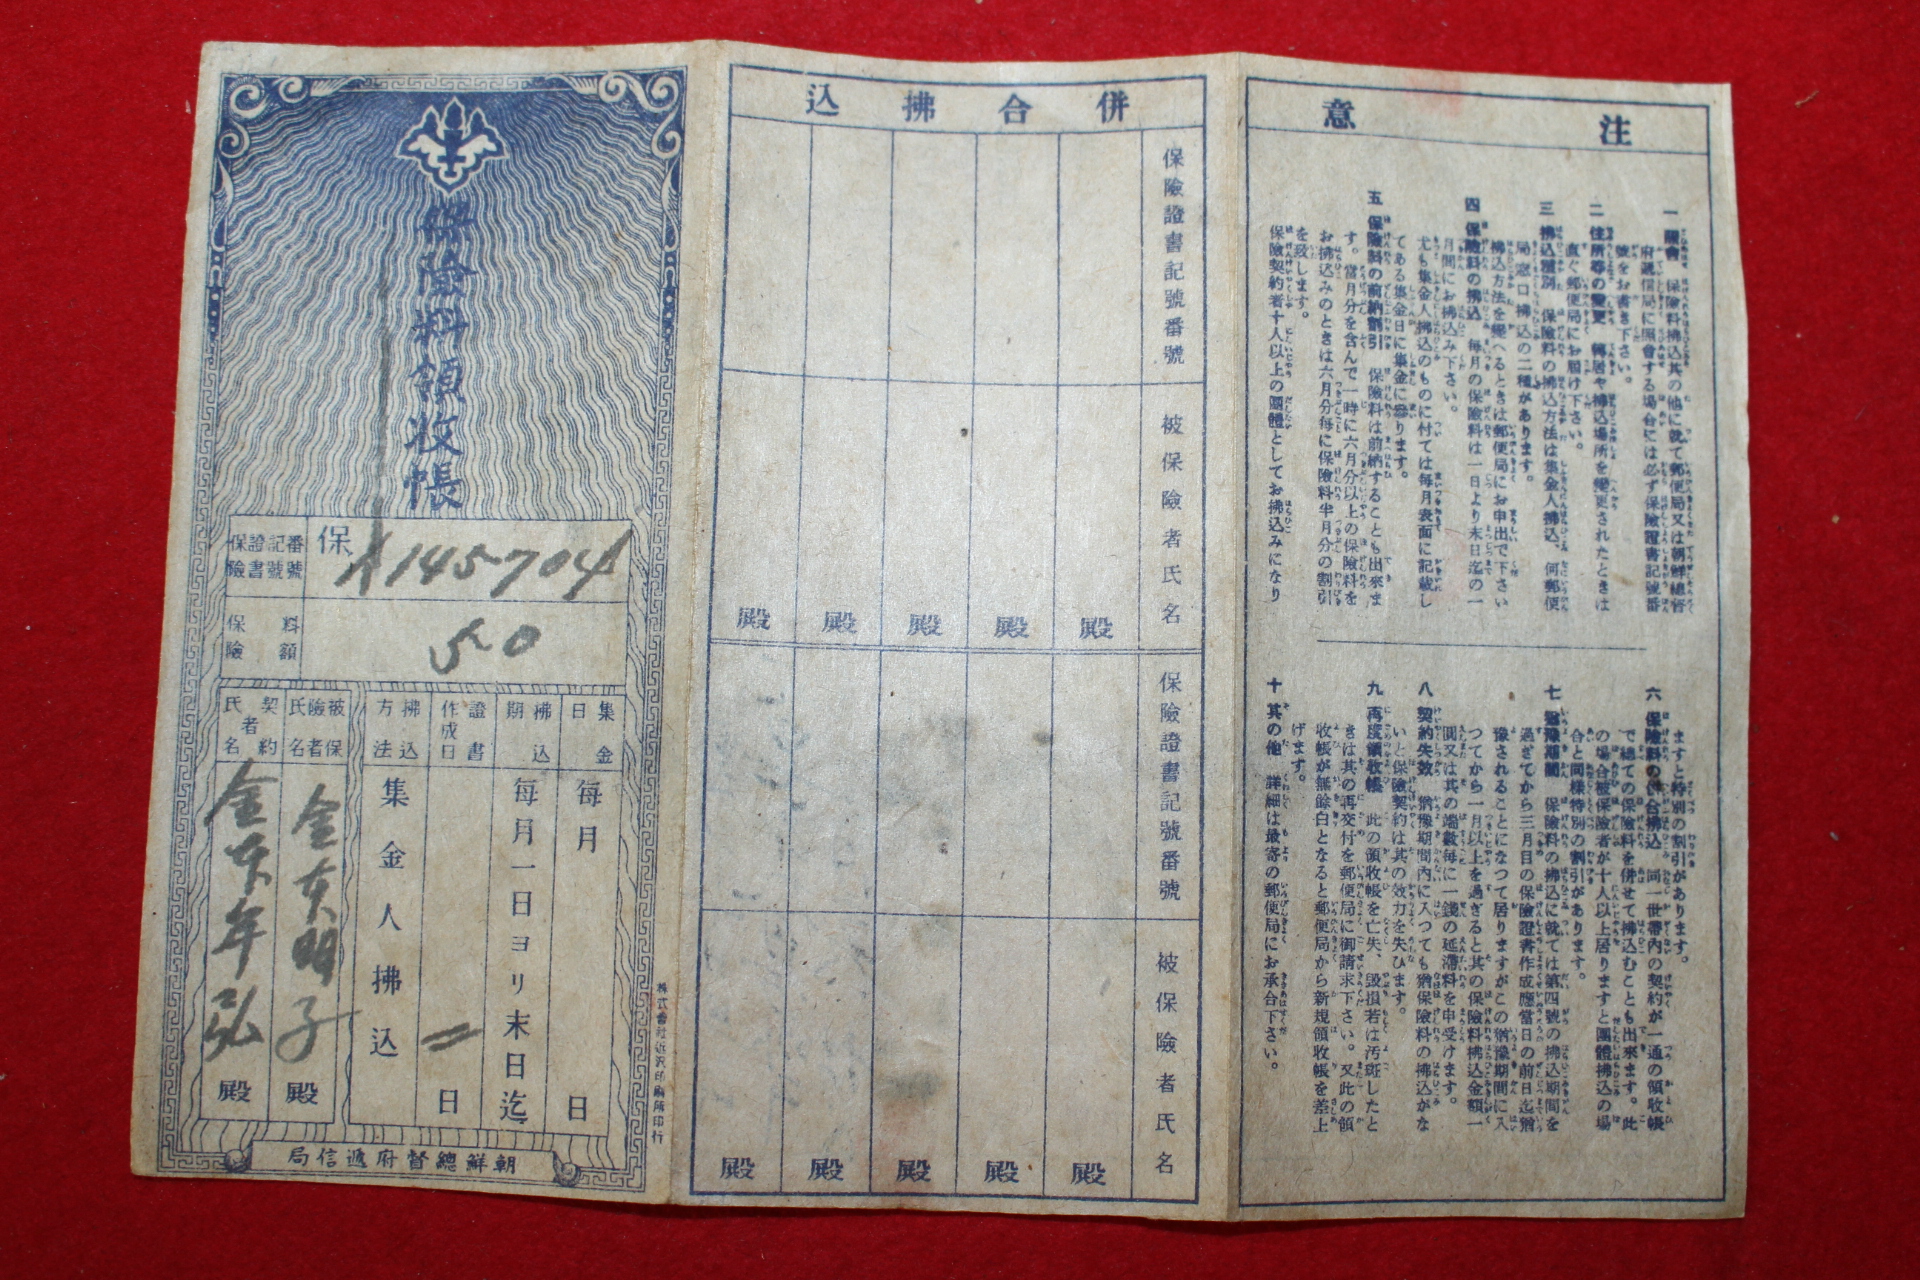 注意
一 照會 保險料拂込其の他に就て郵便局又は朝鮮總督
府遞信局に照會する場合には必ず保險證書記號番
號をお書き下さい。
二 住所等の變更 轉居や拂込場所を變更されたときは
直ぐ郵便局にお届け下さい。
三 拂込種別 保險料の拂込方法は集金人拂込、何郵便
局窓口拂込の二種があります。
拂込方法を變へるときは郵便局にお申出で下さい
四 保險料の拂込 每月の保險料は一日より末日迄の一
月間にお拂込み下さい。
尤も集金人拂込のものに付ては每月表面に記載し
てある集金日に集金に參ります。
五 保險料の前納割引 保險料は前納することも出來ま
す。當月分を含んで一時に六月分以上の保險料を
お拂込みのときは六月分每に保險料半月分の割引
を致します。
保險契約者十人以上の團體としてお拂込みになり
ますと特別の割引があります。
六 保險料の併合拂込 同一世帶內の契約が一通の領收帳
で總ての保險料を併せて拂込むことも出來ます。此
の場合被保險者が十人以上居りますと團體拂込の場
合と同樣特別の割引があります。
七 猶豫期間 保險料の拂込に就ては第四號の拂込期間を
過ぎてから三月目の保險證書作成應當日の前日迄猶
豫されることになつて居りますがこの猶豫期間に入
つてから一月以上を過ぎると其の保險料拂込金額一
圓又は其の端數每に一錢の延滯料を申受けます。
八 契約失效 猶豫期間內に入つても猶保險料の拂込がな
いと保險契約は其の效力を失ひます。
九 再度領收帳 此の領收帳を亡失、毀損若は汚斑したと
きは其の再交付を郵便局に御請求下さい。又此の領
收帳が無餘白となると郵便局から新規領收帳を差上
げます。
十 其の他 詳細は最寄の郵便局にお承合下さい。
併合拂込
保險證書記號番號
被保險者氏名
殿
殿
殿
殿
殿
保險證書記號番號
被保險者氏名
殿
殿
殿
殿
殿
保險料領收帳
保險證書記號番號
保
A145704
保險料額
50
集金日
每月 日
拂込期
每月一日ヨリ末日迄
證書作成日
日
拂込方法
集金人拂込
被保險者氏名
金 明子 殿
契約者氏名
金 年弘 殿
朝鮮總督府遞信局
株式會社近澤印刷所印行